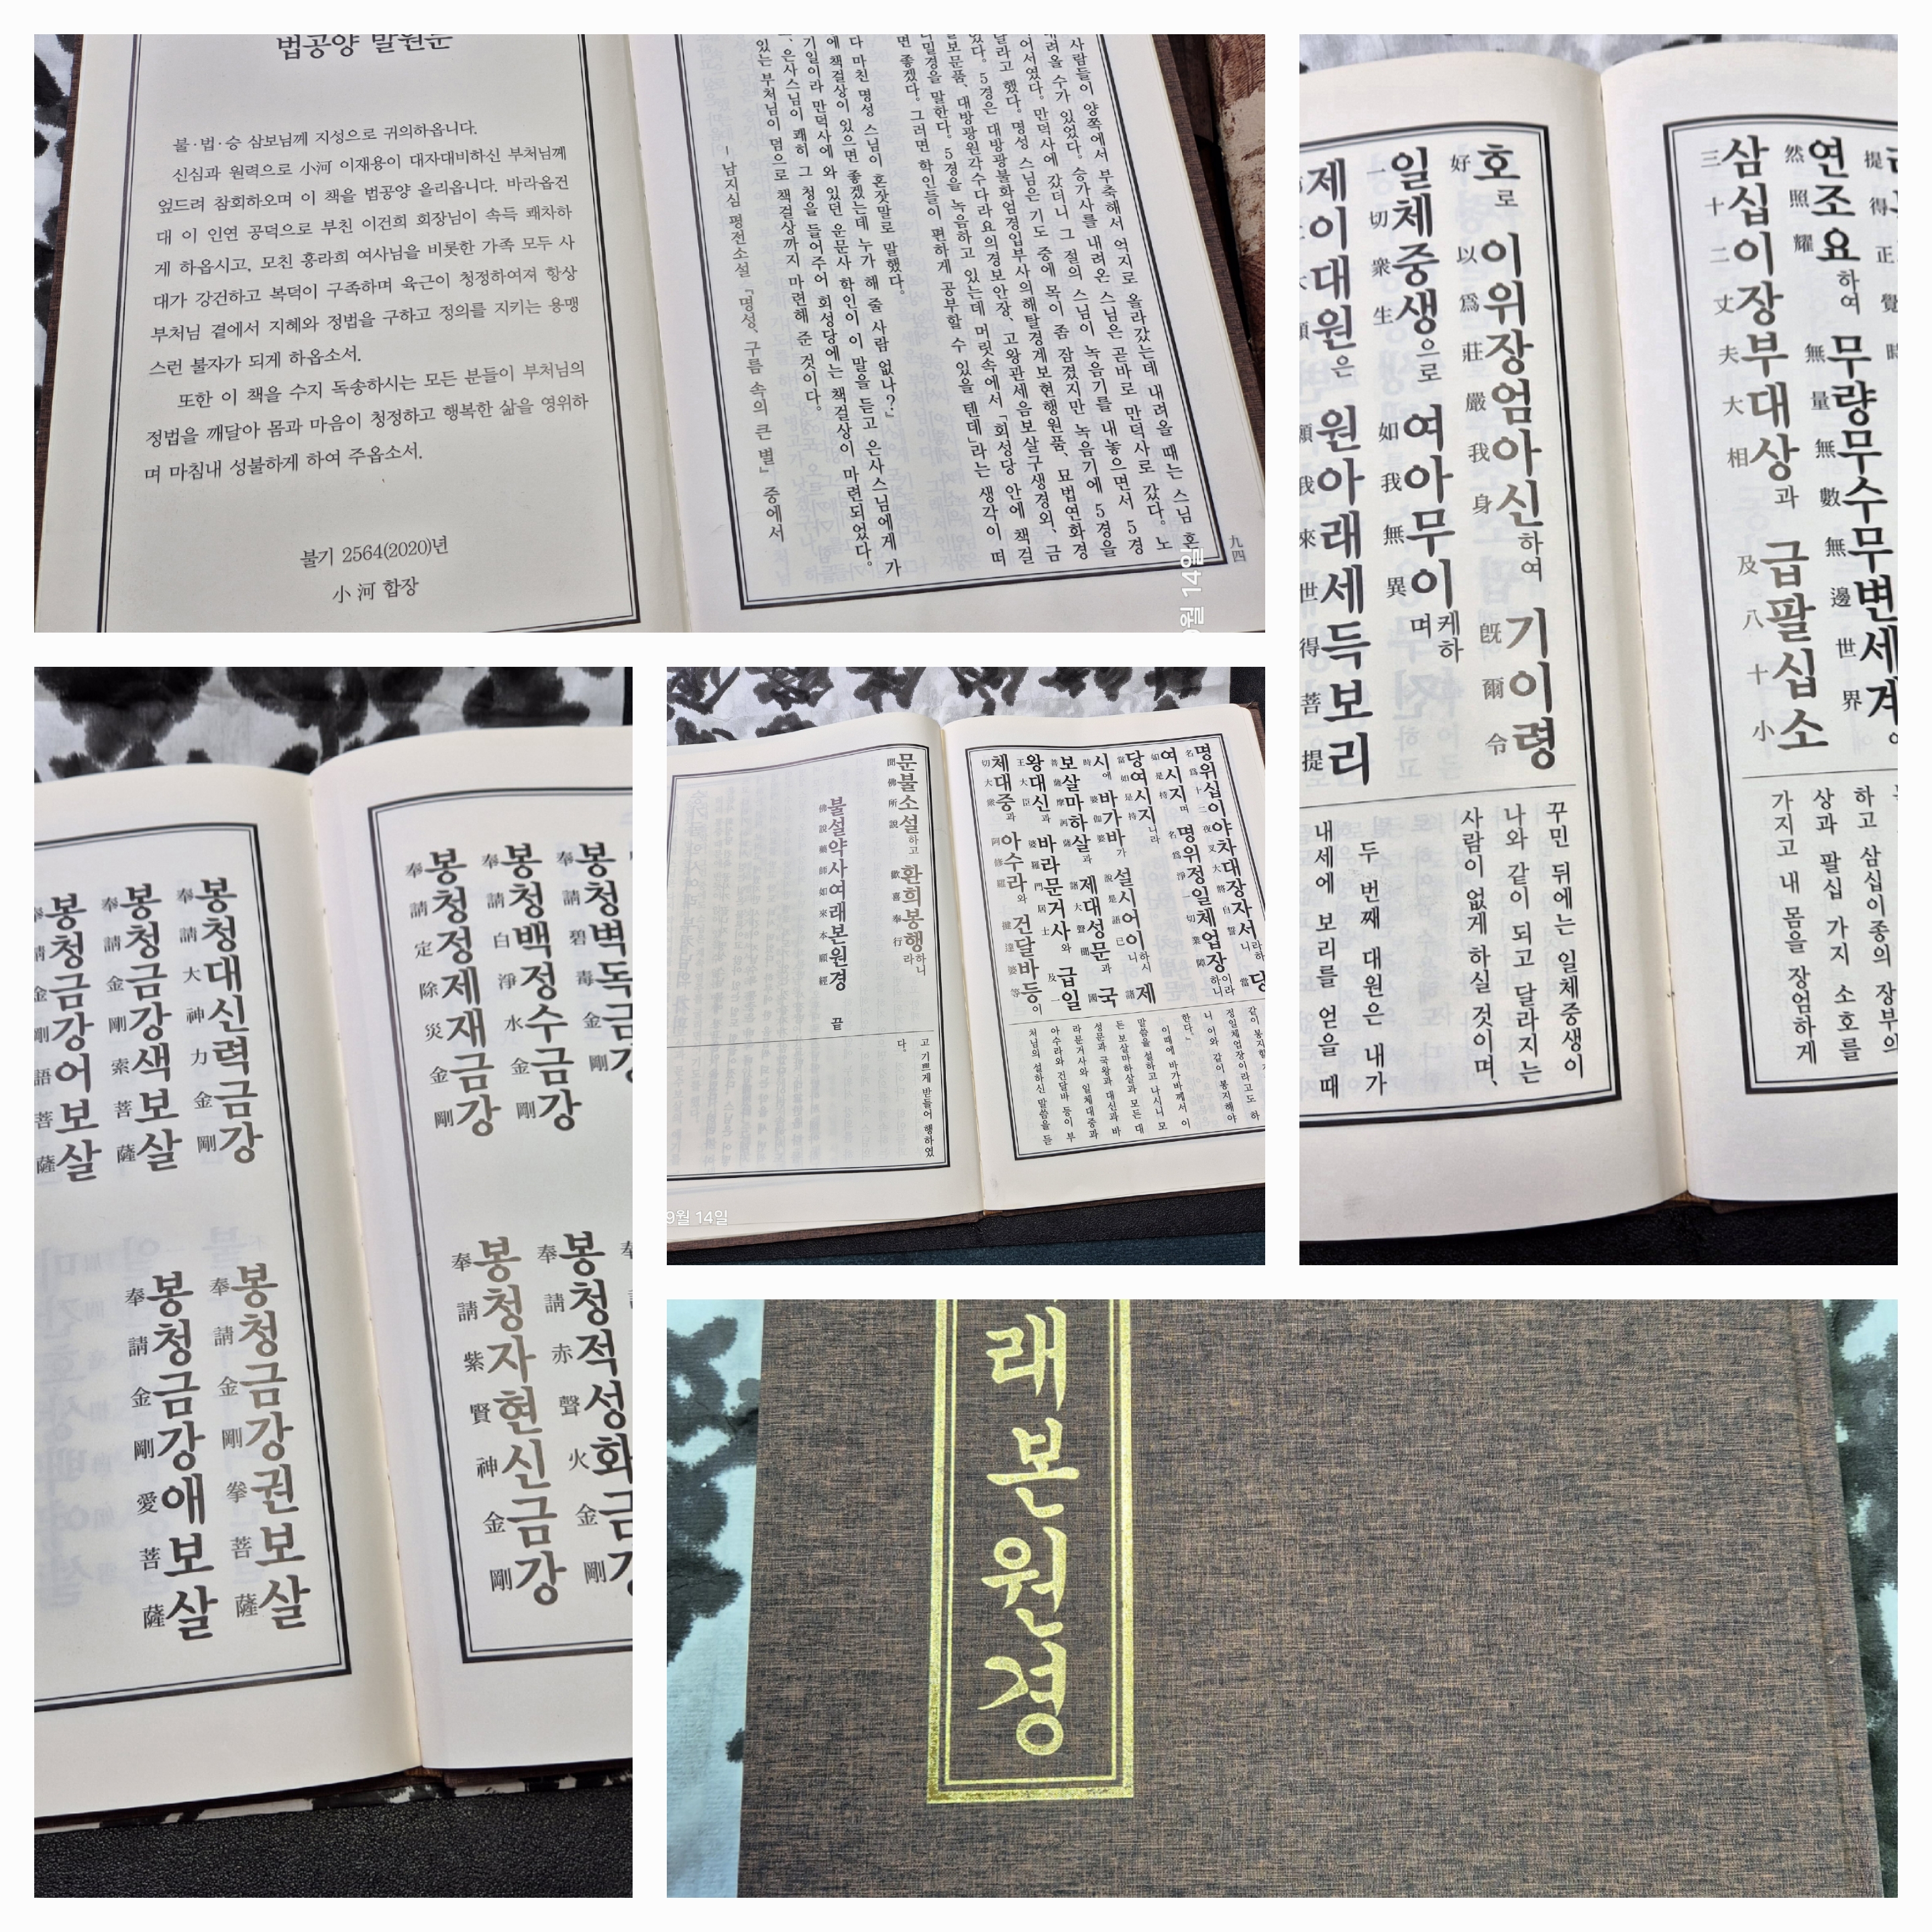 법공양 발원문
불·법·승 삼보님께 지성으로 귀의하옵니다.
신심과 원력으로 小河 이재용이 대자대비하신 부처님께
엎드려 참회하오며 이 책을 법공양 올리옵니다. 바라옵건
대 이 인연 공덕으로 부친 이건희 회장님이 속득 쾌차하
게 하옵시고, 모친 홍라희 여사님을 비롯한 가족 모두 사
대가 강건하고 복덕이 구족하며 육근이 청정하여져 항상
부처님 곁에서 지혜와 정법을 구하고 정의를 지키는 용맹
스런 불자가 되게 하옵소서.
또한 이 책을 수지 독송하시는 모든 분들이 부처님의
정법을 깨달아 몸과 마음이 청정하고 행복한 삶을 영위하
며 마침내 성불하게 하여 주옵소서.
불기 2564(2020)년
小河 합장
사람들이 양쪽에서 부축해서 억지로 올라갔는데 내려올 때는 스님 혼
내려올 수가 있었다. 승가사를 내려온 스님은 곧바로 만덕사로 갔다. 노
어서였다. 만덕사에 갔더니 그 절의 스님이 녹음기를 내놓으면서 5경
달라고 했다. 명성 스님은 기도 중에 목이 좀 잠겼지만 녹음기에 5경을
았다. 5경은 대방광불화엄경입부사의해탈경계보현행원품, 묘법연화경
보문품, 대방광원각수다라요의경보안장, 고왕관세음보살구생경외, 금
밀경을 말한다. 5경을 녹음하고 있는데 머릿속에서 「회성당 안에 책걸
면 좋겠다. 그러면 학인들이 편하게 공부할 수 있을 텐데」라는 생각이 떠
다 마친 명성 스님이 혼잣말로 말했다.
에 책걸상이 있으면 좋겠는데 누가 해 줄 사람 없나?」
기일이라 만덕사에 와 있던 운문사 학인이 이 말을 듣고 은사스님에게 가
은사스님이 쾌히 그 청을 들어주어 회성당에는 책걸상이 마련되었다.
있는 부처님이 덤으로 책걸상까지 마련해 준 것이다.
- 남지심 평전소설 「명성, 구름 속의 큰 별」 중에서
九四
9월 14일
연조요하여 무량무수무변세계
然照耀 無量無數無邊世界
삼십이장부대상과 급팔십소
三十二丈夫大相 及八十小
하고 삼십이종의 장부의
상과 팔십 가지 소호를
가지고 내 몸을 장엄하게
호로 이위장엄아신하여 기이령
好 以爲莊嚴我身 旣爾令
일체중생으로 여아무이케하며
一切衆生 如我無異
제이대원은 원아래세득보리
大願 願我來世得菩提
꾸민 뒤에는 일체중생이
나와 같이 되고 달라지는
사람이 없게 하실 것이며,
두 번째 대원은 내가
내세에 보리를 얻을 때
봉청벽독금강
奉請碧毒金剛
봉청백정수금강
奉請白淨水金剛
봉청정제재금강
奉請定除災金剛
봉청적성화금강
奉請赤聲火金剛
봉청자현신금강
奉請紫賢神金剛
봉청대신력금강
奉請大神力金剛
봉청금강색보살
奉請金剛索菩薩
봉청금강어보살
請金剛語菩薩
봉청금강권보살
奉請金剛拳菩薩
봉청금강애보살
奉請金剛愛菩薩
명위십이야차대장자서라하니 당
名爲十二夜叉大將自誓 當
여시지며 명위정일체업장이라하니
如是持 名爲淨一切業障
당여시지니라
當如是持
시에 바가바가 설시어이하시니 제
時 婆伽婆 說是語已 諸
보살마하살과 제대성문과 국
菩薩摩訶薩 諸大聲聞 國
왕대신과 바라문거사와 급일
王大臣 婆羅門居士 及一
체대중과 아수라와 건달바등이
切大衆 阿修羅 揵達婆等
같이 봉지할
정일체업장이라고도 하
니 이와 같이 봉지해야
한다.」
이때에 바가바께서 이
말씀을 설하고 나시니 모
든 보살마하살과 모든 대
성문과 국왕과 대신과 바
라문거사와 일체대중과
아수라와 건달바 등이 부
처님의 설하신 말씀을 듣
문불소설하고 환희봉행하니라
聞佛所說 歡喜奉行
불설약사여래본원경
佛說藥師如來本願經
끝
고 기쁘게 받들어 행하였
다.
9월 14일
래본원경